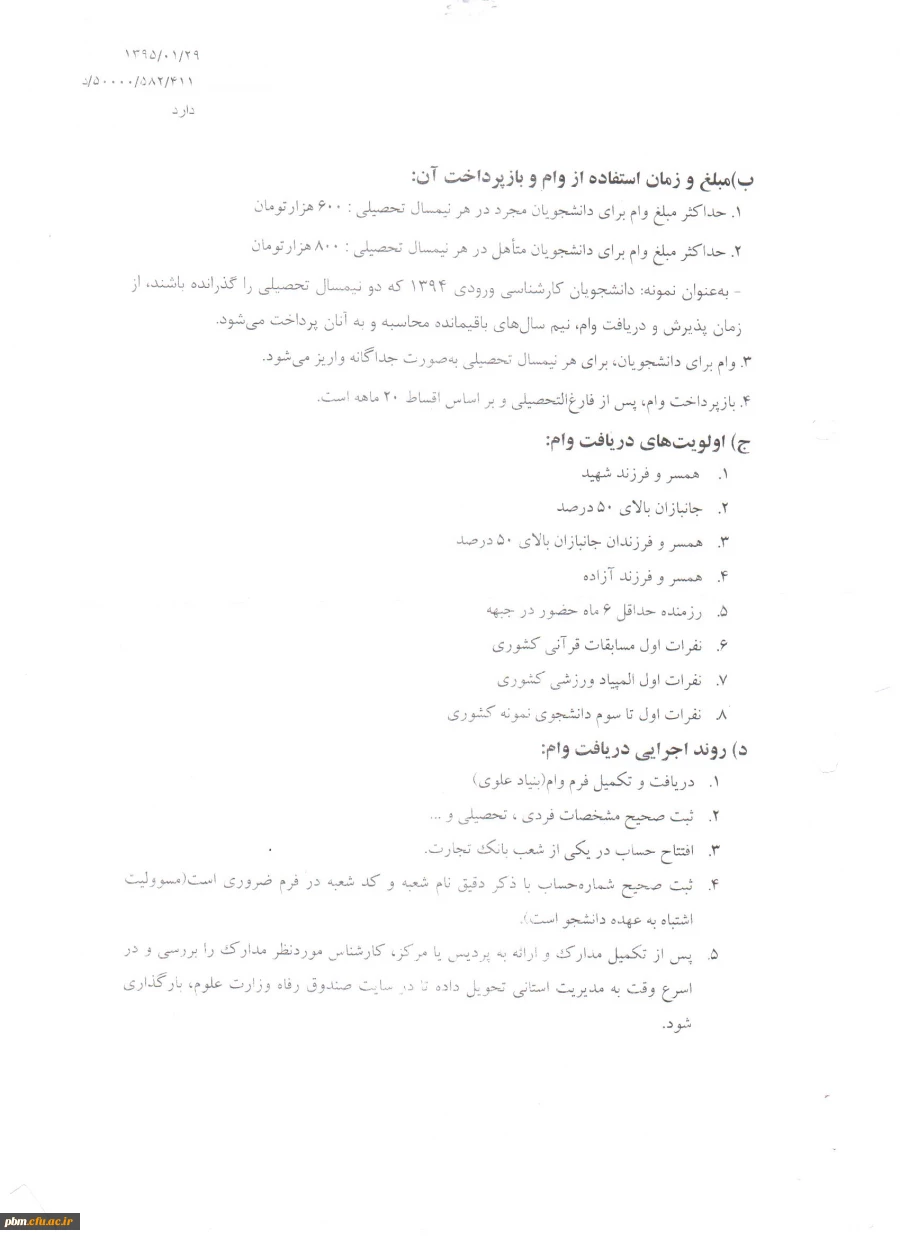 ۱۳۹۵/۰۱/۲۹
۵۰۰۰۰/۵۸۲/۴۱۱/د
دارد
ب)مبلغ و زمان استفاده از وام و بازپرداخت آن:
۱. حداکثر مبلغ وام برای دانشجویان مجرد در هر نیمسال تحصیلی : ۶۰۰ هزارتومان
۲. حداکثر مبلغ وام برای دانشجویان متأهل در هر نیمسال تحصیلی : ۸۰۰ هزارتومان
- به‌عنوان نمونه: دانشجویان کارشناسی ورودی ۱۳۹۴ که دو نیمسال تحصیلی را گذرانده باشند، از
زمان پذیرش و دریافت وام، نیم سال‌های باقیمانده محاسبه و به آنان پرداخت می‌شود.
۳. وام برای دانشجویان، برای هر نیمسال تحصیلی به‌صورت جداگانه واریز می‌شود.
۴. بازپرداخت وام، پس از فارغ‌التحصیلی و بر اساس اقساط ۲۰ ماهه است.
ج) اولویت‌های دریافت وام:
۱. همسر و فرزند شهید
۲. جانبازان بالای ۵۰ درصد
۳. همسر و فرزندان جانبازان بالای ۵۰ درصد
۴. همسر و فرزند آزاده
۵. رزمنده حداقل ۶ ماه حضور در جبهه
۶. نفرات اول مسابقات قرآنی کشوری
۷. نفرات اول المپیاد ورزشی کشوری
۸. نفرات اول تا سوم دانشجوی نمونه کشوری
د) روند اجرایی دریافت وام:
۱. دریافت و تکمیل فرم وام(بنیاد علوی)
۲. ثبت صحیح مشخصات فردی ، تحصیلی و ...
۳. افتتاح حساب در یکی از شعب بانک تجارت.
۴. ثبت صحیح شماره‌حساب با ذکر دقیق نام شعبه و کد شعبه در فرم ضروری است(مسوولیت
اشتباه به عهده دانشجو است).
۵. پس از تکمیل مدارک و ارائه به پردیس یا مرکز، کارشناس موردنظر مدارک را بررسی و در
اسرع وقت به مدیریت استانی تحویل داده تا در سایت صندوق رفاه وزارت علوم، بارگذاری
شود.
pbm.cfu.ac.ir